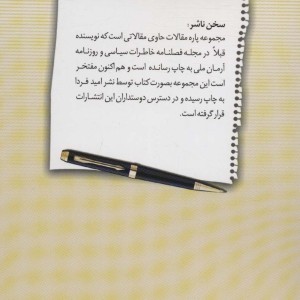 سخن ناشر:
مجموعه پاره مقالات حاوی مقالاتی است که نویسنده
قبلاً در مجله فصلنامه خاطرات سیاسی و روزنامه
آرمان ملی به چاپ رسانده است و هم اکنون مفتخر
است این مجموعه بصورت کتاب توسط نشر امید فردا
به چاپ رسیده و در دسترس دوستداران این انتشارات
قرار گرفته است.